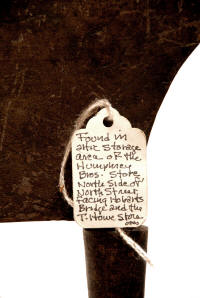 Found in
attic storage
area of the
Humphrey
Bros. Store
North side of
North Street
facing Hobarts
Bridge and the
T. Howe Store.